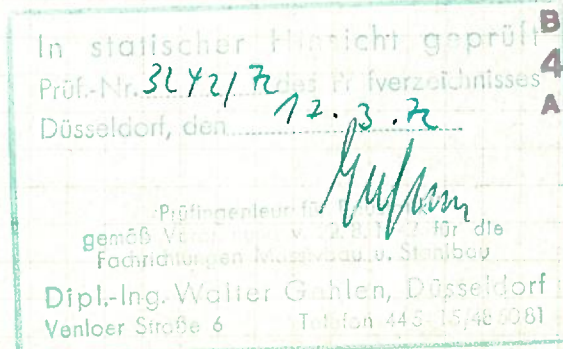 In statischer Hinsicht geprüft
Prüf.-Nr. 3242/72 des Prüfverzeichnisses
Düsseldorf, den 17.3.72
Prüfingenieur für
gemäß für die
Fachrichtungen Massivbau u. Stahlbau
Dipl.-Ing. Walter Gahlen, Düsseldorf
Venloer Straße 6 Telefon
B
4
A